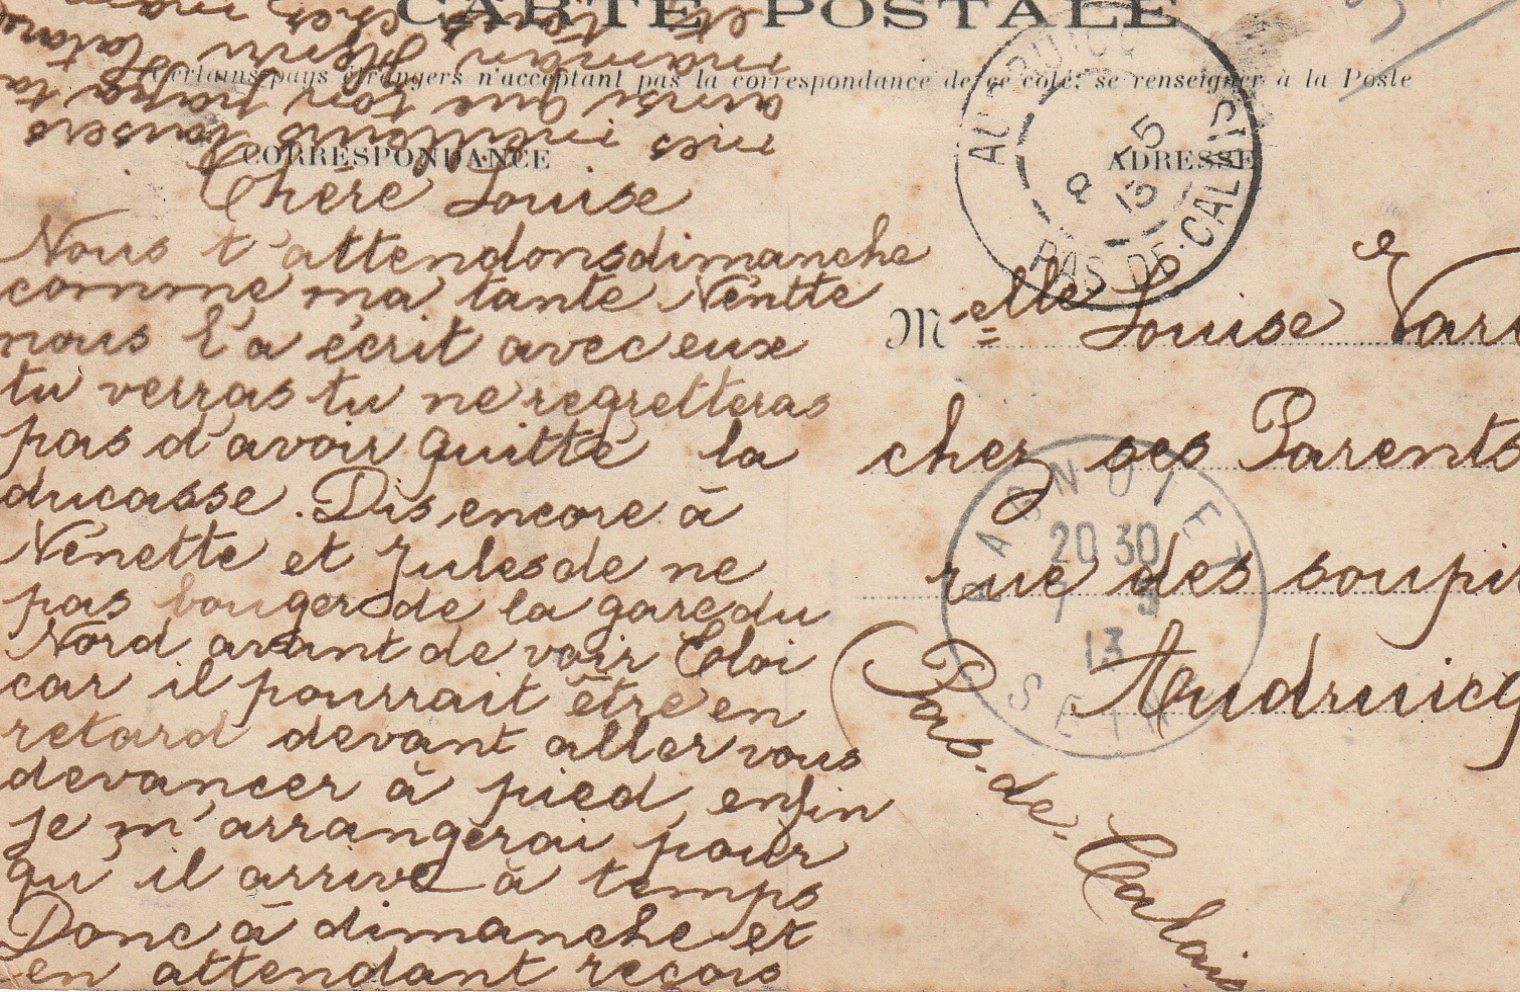 CARTE POSTALE
Certains pays étrangers n'acceptant pas la correspondance de ce coté, se renseigner à la Poste
CORRESPONDANCE
ADRESSE
Chère Louise
Nous t'attendons dimanche
comme ma tante Nénette
nous l'a écrit avec eux
tu verras tu ne regretteras
pas d'avoir quitté la
ducasse. Dis encore à
Nénette et Jules de ne
pas bouger de la gare du
Nord avant de voir Eloi
car il pourrait être en
retard devant aller vous
devancer à pied, enfin
je m'arrangerai pour
qu'il arrive à temps
Donc à dimanche et
en attendant reçois
mes meilleurs baisers
ainsi que ton papa ta
maman Henri
et tous chez
Melle Louise
chez ses Parents
rue des
Audruicq
Pas-de-Calais
PAS-DE-CALAIS
8 -5
13
BAGNOLET
20 30
7 5
13
SEINE